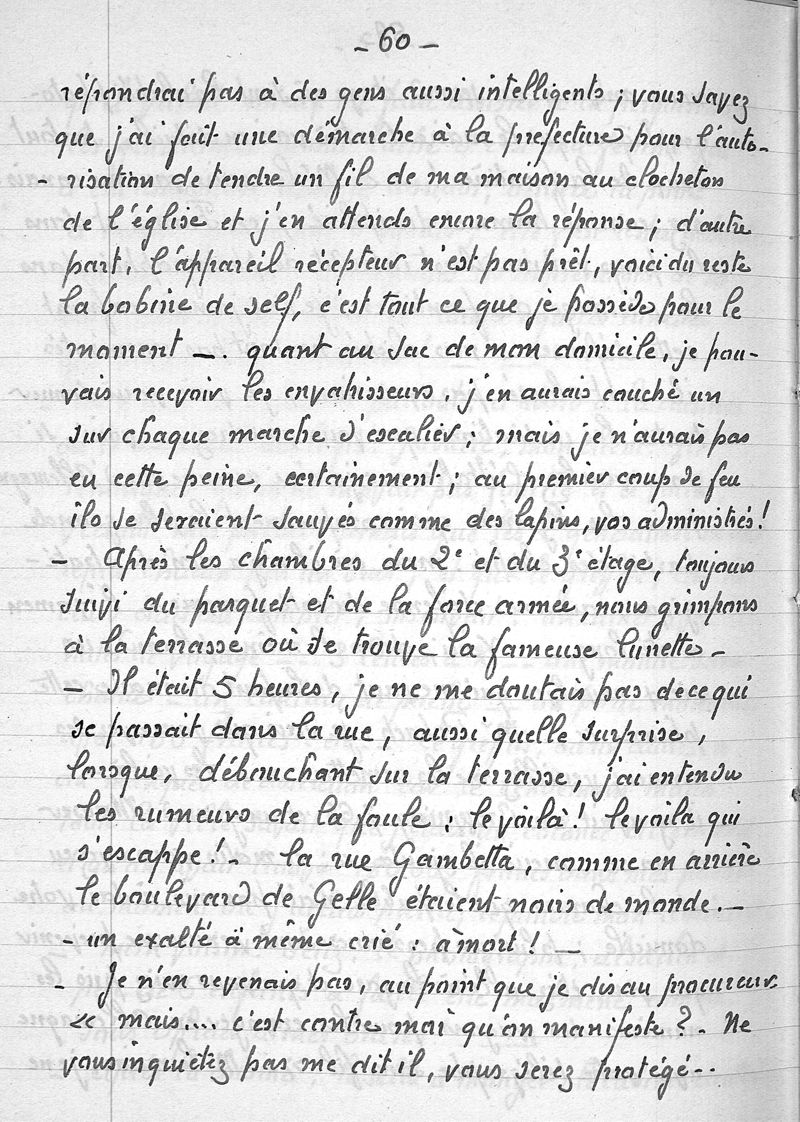 - 60 -
répondrai pas à des gens aussi intelligents ; vous savez
que j'ai fait une démarche à la préfecture pour l'auto-
- risation de tendre un fil de ma maison au clocheton
de l'église et j'en attends encore la réponse ; d'autre
part, l'appareil récepteur n'est pas prêt, voici du reste
la bobine de self, c'est tout ce que je possède pour le
moment —. quant au sac de mon domicile, je pou-
vais recevoir les envahisseurs, j'en aurais couché un
sur chaque marche d'escalier ; mais je n'aurais pas
eu cette peine, certainement ; au premier coup de feu
ils se seraient sauvés comme des lapins, vos administrés !
- Après les chambres du 2e et du 3e étage, toujours
suivi du parquet et de la force armée, nous grimpons
à la terrasse où se trouve la fameuse lunette -
- Il était 5 heures, je ne me doutais pas de ce qui
se passait dans la rue, aussi quelle surprise,
lorsque, débouchant sur la terrasse, j'ai entendu
les rumeurs de la foule : le voilà ! le voila qui
s'escappe ! - la rue Gambetta, comme en arrière
le boulevard de Gelle étaient noirs de monde. -
- un exalté à même crié : à mort ! —
- Je n'en revenais pas, au point que je dis au procureur
« mais.... c'est contre moi qu'on manifeste ? - Ne
vous inquiétez pas me dit il, vous serez protégé --